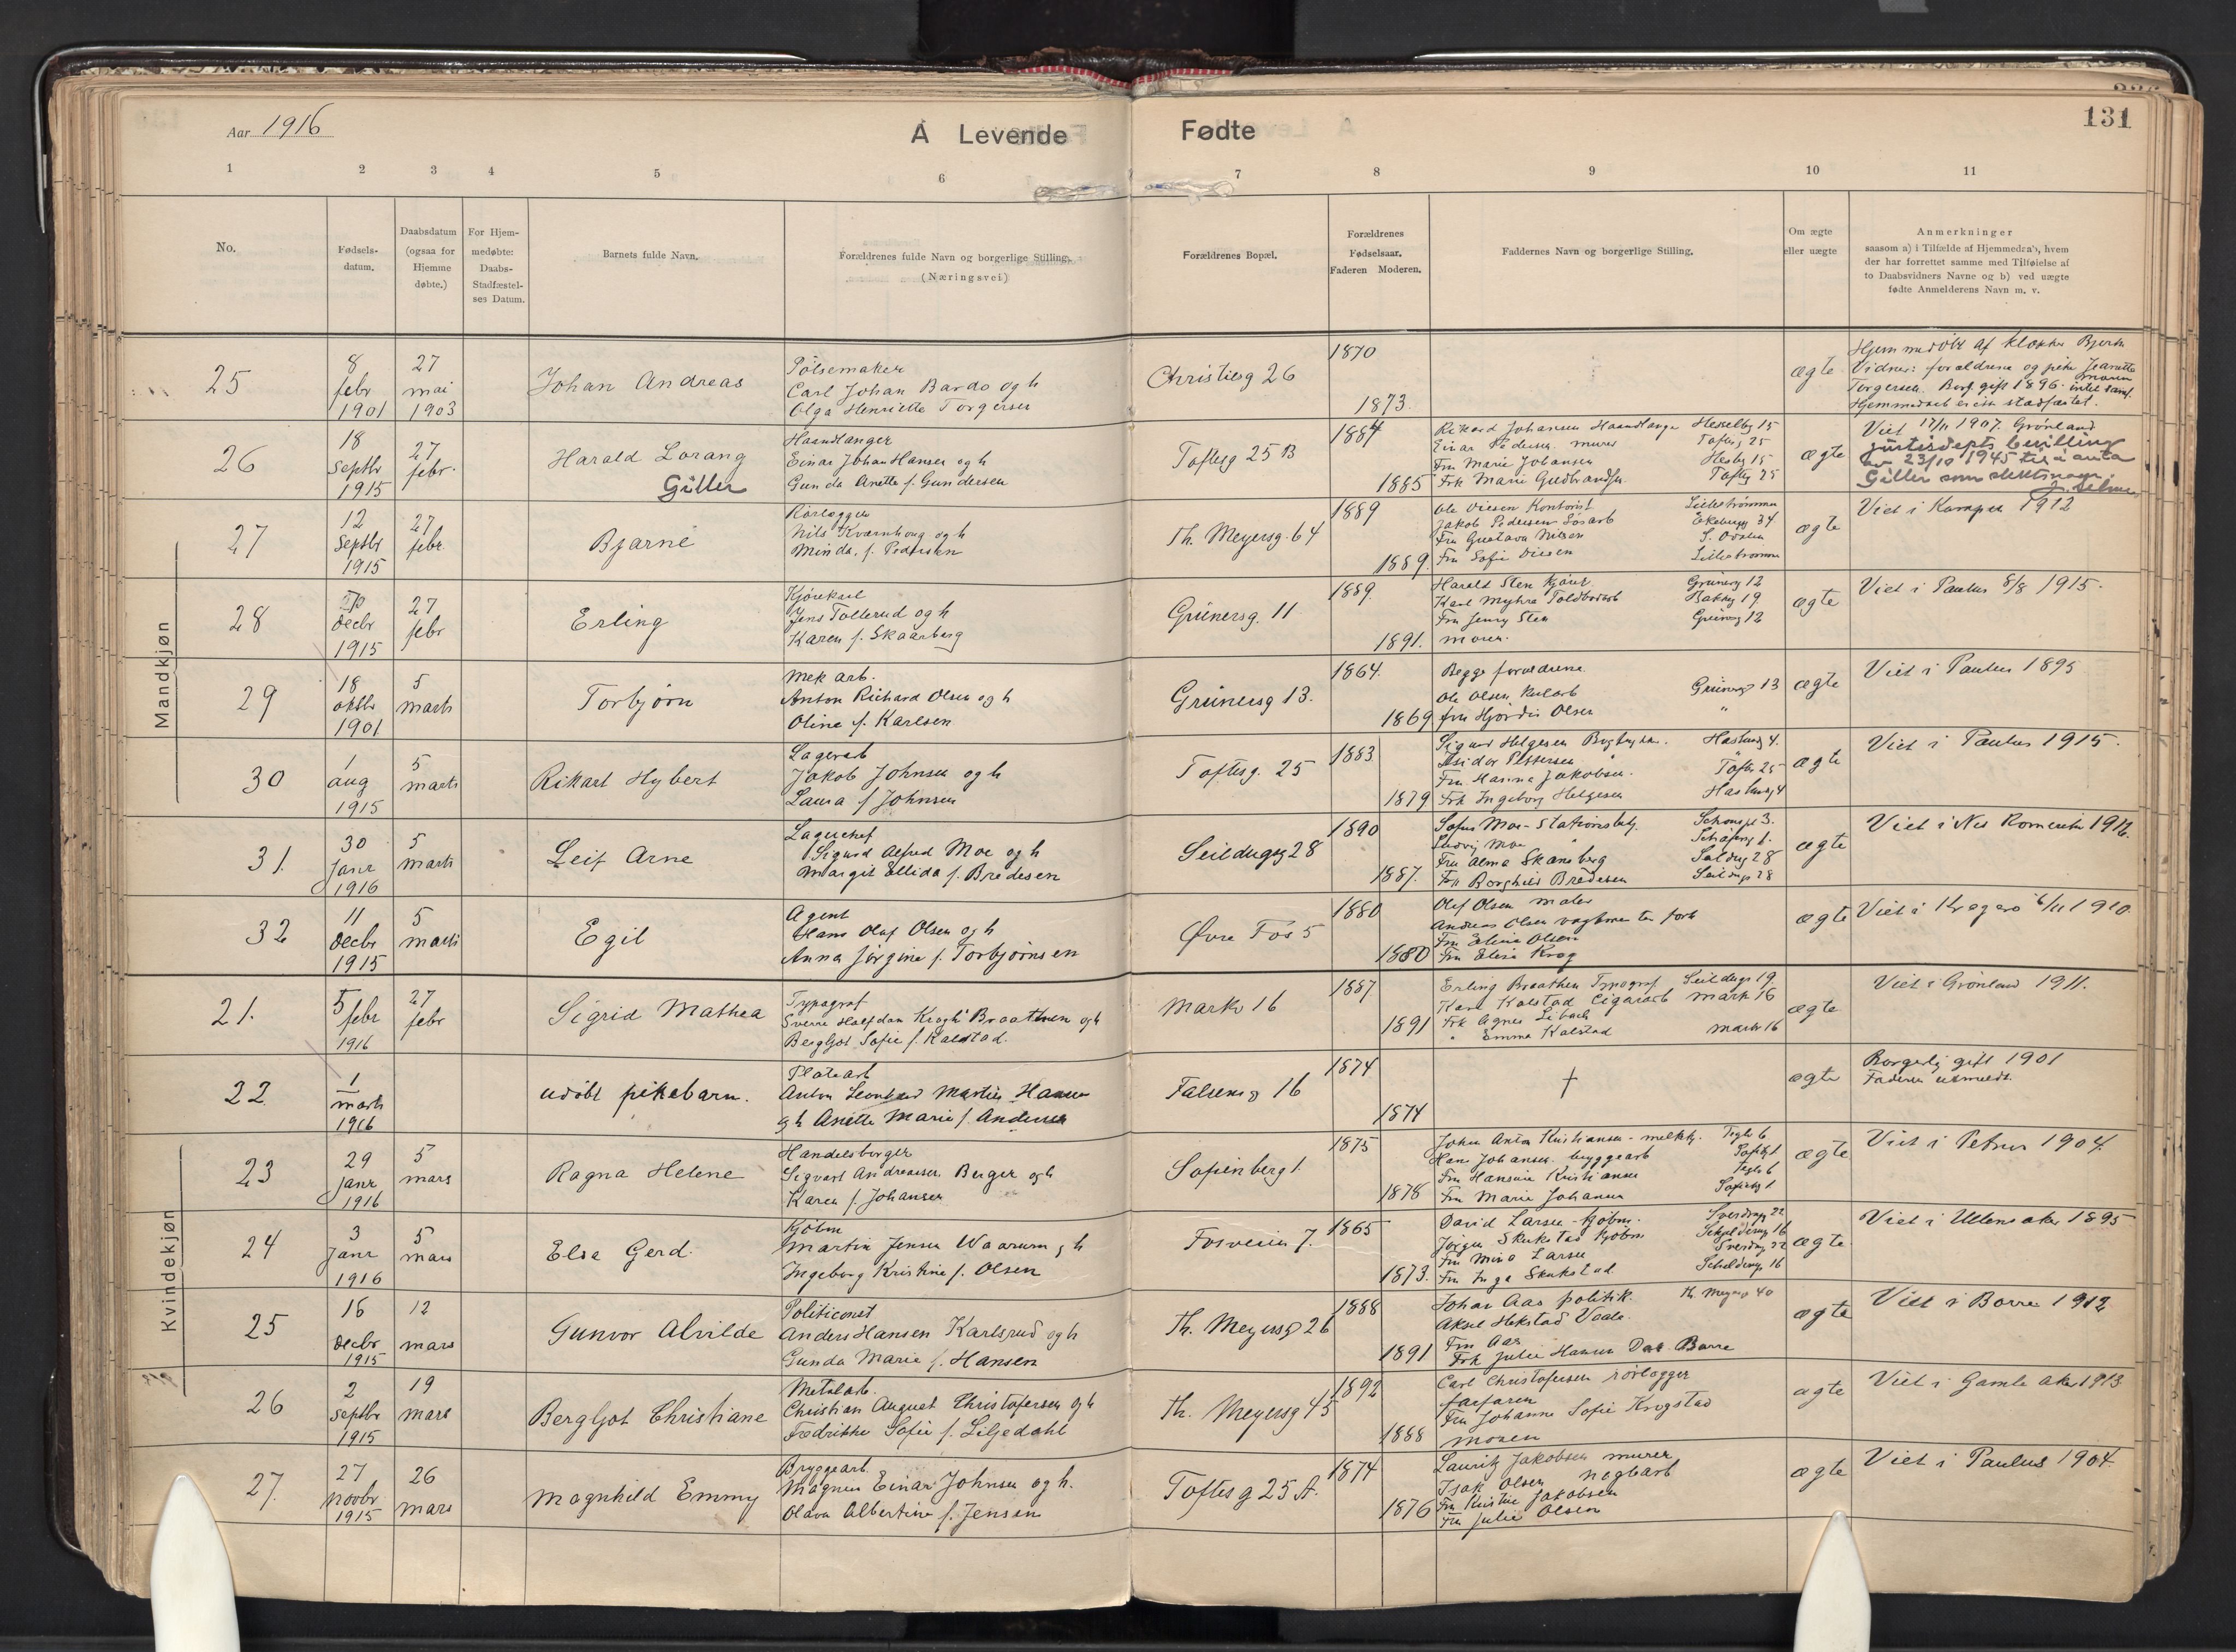 131
Aar 1916
A Levende Fødte
1 2 3 4 5 6 7 8 9 10 11
No.
Fødsels-
datum.
Daabsdatum
(ogsaa for
Hjemme
døbte.)
For Hjem-
medøbte:
Daabs-
Stadfæstel-
ses Datum.
Barnets fulde Navn.
Forældrenes fulde Navn og borgerlige Stilling.
(Næringsvei)
Forældrenes Bopæl.
Forældrenes
Fødselsaar.
Faderen Moderen.
Faddernes Navn og borgerlige Stilling.
Om ægte
eller uægte
Anmerkninger
saasom a) i Tilfælde af Hjemmedaab, hvem
der har forrettet samme med Tilføielse af
to Daabsvidners Navne og b) ved uægte
fødte Anmelderens Navn m. v.
Mandkjøn
25
8
febr
1901
27
mai
1903
Johan Andreas
Pølsemaker
Carl Johan Bardo og h
Olga Henriette Torgersen
Christiesg 26
1870
1873.
ægte
Hjemmedøbt af klokker
Vidner: forældrene og pike Jeanette
Torgersen. Borg. gift 1896.
Hjemmedaab er ikke stadfæstet.
26
18
septbr
1915
27
febr.
Harald Lorang
Giller
Haandlanger
Einar Johan Hansen og h
Gunda Anette f. Gundersen
Toftesg 25 B
1884
1885
Rikard Johansen Haandlanger Hesselbg 15
Einar Pedersen murer Toftesg 25
Fru Marie Johansen Hesbg 15
Frk Marie Gudbrandsen Toftesg 25
ægte
Viet 17/11 1907. Grønland
Justisdepts bevilling
av 23/10 1945 til å anta
Giller som slektsnavn.
27
12
Septbr
1915
27
febr.
Bjarne
Rørlegger
Nils Kvarnhoug og h
Minda f. Pedersen
Th. Meyersg. 64
1889
1889.
Ole Diesen Kontorist Lillestrømmen
Jakob Pedersen Ekebergg 34
Fru Gustava Nilsen S. Odalen
Fru Sofie Diesen Lillestrømmen
ægte
Viet i Kampen 1912
28
decbr
1915
27
febr
Erling
Kjørekarl
Jens Tollerud og h
Karen f. Skaarberg
Grünersg. 11
1889.
1891.
Harald Sten Kjører Grünersg 12
Karl Myhre Toldbodarb Bakkeg 19
Fru Jenny Sten Grünersg 12
moren.
ægte
Viet i Paulus 8/8 1915.
29
18
oktbr
1901
5
marts
Torbjørn
Mek arb.
Anton Richard Olsen og h
Oline f. Karlsen
Grünersg 13.
1864.
1869
Begge forældrene
Ole Olsen Grünersg 13
fru Hjørdis Olsen "
ægte
Viet i Paulus 1895
30
1
aug
1915
5
marts
Rikart Hybert
Lagerarb
Jakob Johnsen og h
Laura f Johnsen
Toftesg. 25
1883
1879
Sigurd Helgesen
Fru Hanna Jakobsen. Toftesg 25
Frk Ingeborg Helgesen
ægte
Viet i Paulus 1915.
31.
30
Janr
1916
5
marts
Leif Arne
Lagerchef
Sigurd Alfred Moe og h
Margit Ellida f. Bredesen
Seildugsg 28
1890
1887.
Sofus Moe - Stationsbetj.
Ludvig Moe
Fru Alma Skansberg Seildugsg 28
Frk Borghild Bredesen Seildugsg 28
ægte
Viet i Nes Romerike
32
11
Decbr
1915
5
marts
Egil
Agent
Hans Olaf Olsen og h
Anna Jørgine f. Torbjørnsen
Øvre Fos 5
1880
1880
Olaf Olsen maler
Andreas Olsen
Fru Eline Olsen
Fru Elise Krog
ægte
Viet i Kragerø 1910.
Kvindekjøn
21.
5
febr
1916
27
febr
Sigrid Mathea
Typograf
Sverre Halfdan Krogh Braathen og h
Bergljot Sofie f. Kalstad.
Markv 16
1887
1891
Erling Braathen Typograf Seildugsg 19
Karl Kalstad Cigararb Markv 16
Frk Agnes
" Emma Kalstad Markv 16
ægte
Viet i Grønland 1911.
22
1
marts
1916
udøbt pikebarn.
Platearb
Anton Leonhard Martin Hansen
og h Anette Marie f. Andersen
Falsensg 16
1874
1874
†
ægte
Borgerlig gift 1901
Faderen utmeldt.
23
29
janr
1916
5
mars
Ragna Helene
Handelsborger
Sigvart Andreasen Berger og h
Karen f. Johansen
Sofienberg 1.
1875
1878
Johan Anton Kristiansen - melkhj. Teglv 6
Hans Johansen bryggearb Sofiebg 1
Fru Hansine Kristiansen Teglv 6
Fru Marie Johansen Sofiebg 1
ægte
Viet i Petrus 1904.
24
3
Janr
1916
5
mars
Else Gerd.
Kjøbm
Martin Jensen Waarum og h
Ingeborg Kristine f. Olsen
Fosveien 7.
1865
1873.
David Larsen - kjøbm. Sverdrupg 22
Jørgen Skukstad kjøbm
Fru Mina Larsen Sverdrg 22
Fru Inga Skukstad
ægte
Viet i Ullensaker 1895
25
16
decbr
1915
12
mars
Gunvor Alvilde
Politiconst
Anders Hansen Karlsrud og h
Gunda Marie f. Hansen
Th. Meyersg 26
1888
1891
Johan Aas politik. Th. Meyersg 40
Aksel Hekstad Vaale.
Fru Aas
Frk Julie Hansen Borre
ægte
Viet i Borre 1912
26
2
septbr
1915
19
mars
Bergljot Christiane
Metalarb.
Christian August Christofersen og h
Fredrikke Sofie f. Liljedahl
Th. Meyersg 45
1892
1888
Carl Christofersen rørlægger
farfaren
Fru Johanne Sofie Krogstad
moren
ægte
Viet i Gamle Aker 1913.
27.
27
Novbr
1915
26
mars
Magnhild Emmy
Bryggearb.
Magnus Einar Johnsen og h.
Olava Albertine f. Jensen
Toftesg 25 A.
1874
1876
Lauritz Jakobsen murer
Isak Olsen
Fru Kristine Jakobsen
Fru Julie Olsen
ægte
Viet i Paulus 1904.